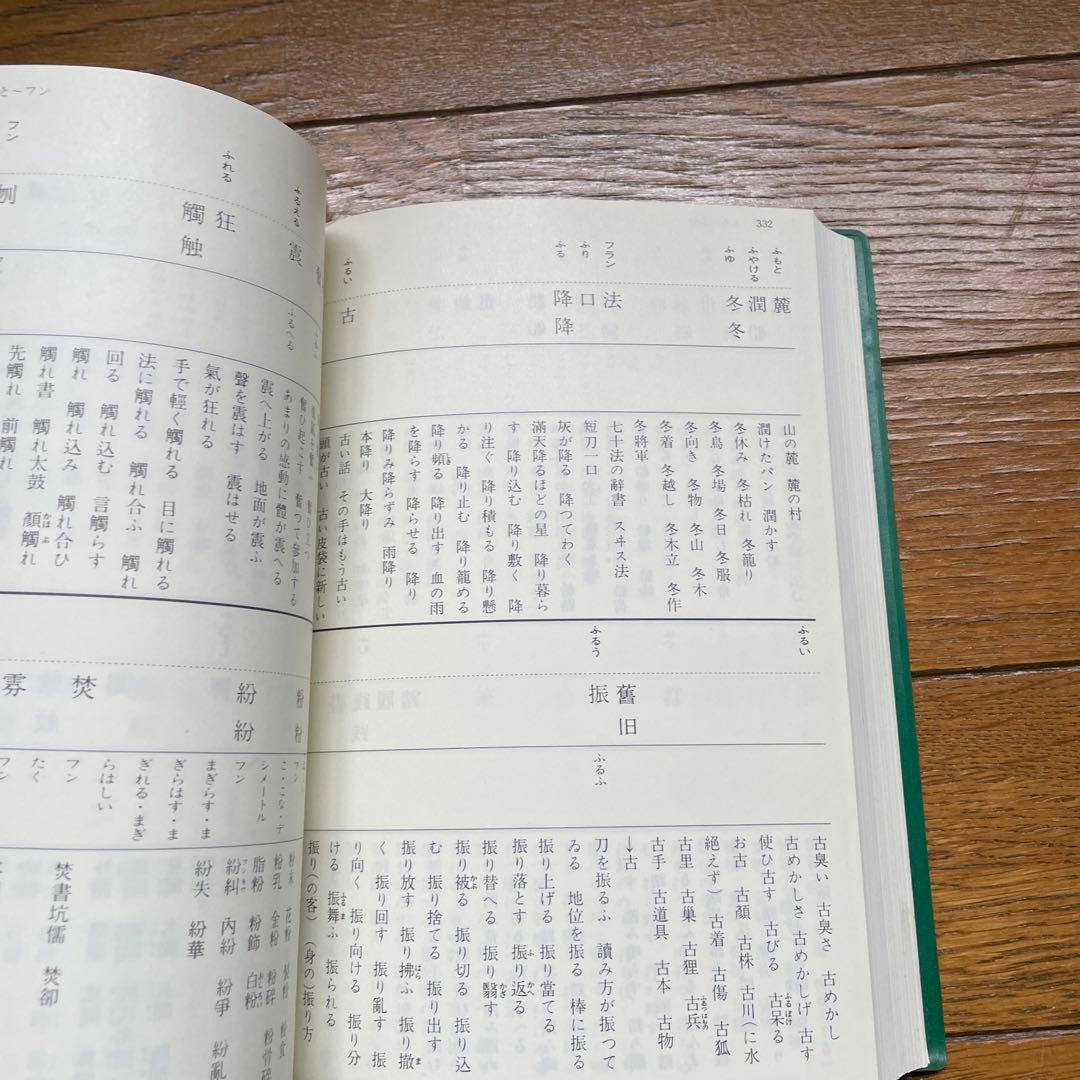 332
ふもと
ふやける
ふゆ
フラン
ふり
ふる
ふるい
麓
潤
冬冬
法
口
降降
古
山の麓 麓の村
潤けたパン 潤かす
冬休み 冬枯れ 冬籠り
冬鳥 冬場 冬日 冬服
冬向き 冬物 冬山 冬木
冬着 冬越し 冬木立 冬作
冬將軍
七十法の辭書 スヰス法
短刀一口
灰が降る 降つてわく
滿天降るほどの星 降り暮ら
す 降り込む 降り敷く 降
り注ぐ 降り積もる 降り懸
かる 降り止む 降り籠める
降り頻る 降り出す 血の雨
を降らす 降らせる 降り
降りみ降らずみ 雨降り
本降り 大降り
古い話 その手はもう古い
頭が古い 古い皮袋に新しい
ふるい
ふるう
舊旧
振
ふるふ
古臭い 古臭さ 古めかし
古めかしさ 古めかしげ 古す
使ひ古す 古びる 古呆る
お古 古顏 古株 古川(に水
絶えず) 古着 古傷 古狐
古里 古巢 古狸 古兵
古手 古道具 古本 古物
→古
刀を振るふ 讀み方が振つて
ゐる 地位を振る 棒に振る
振り上げる 振り當てる
振り落とす 振り返る
振り替へる 振り翳す
振り被る 振り切る 振り込
む 振り捨てる 振り出す
振り放す 振り拂ふ 振り撤
く 振り回す 振り亂す 振
り向く 振り向ける 振り分
ける 振舞ふ 振られる
振り(の客) (身の)振り方
と―フン
ふるえる
ふれる
フン
震
狂
觸触
刎
ふるへる
あまりの感動に體が震へる
震へ上がる 地面が震ふ
聲を震はす 震はせる
氣が狂れる
手で輕く觸れる 目に觸れる
法に觸れる 觸れ合ふ 觸れ
回る 觸れ込む 言觸らす
觸れ 觸れ込み 觸れ合ひ
觸れ書 觸れ太鼓 顏觸れ
先觸れ 前觸れ
粉粉
紛紛
焚
雰
フン
こ・こな・デ
シメートル
フン
まぎらす・ま
ぎらはす・ま
ぎれる・まぎ
らはしい
フン
たく
フン
粉末 花粉
粉乳 金粉 粉碎
脂粉 粉飾 白粉 粉骨碎
紛糾 內紛 紛爭 紛亂
紛失 紛華
焚書坑儒 焚卻